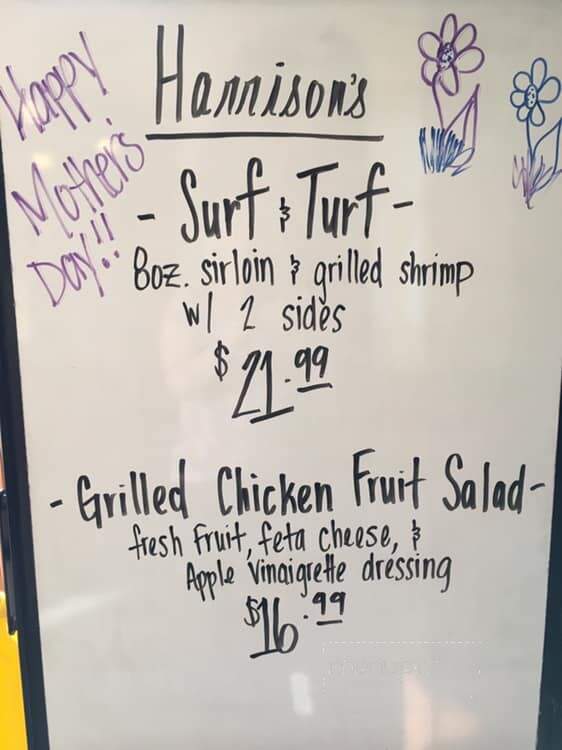 Happy
Mother's
Day!!
Harrison's
- Surf & Turf -
8oz. sirloin & grilled shrimp
w/ 2 sides
$21.99
- Grilled Chicken Fruit Salad -
fresh fruit, feta cheese, &
Apple Vinaigrette dressing
$16.99